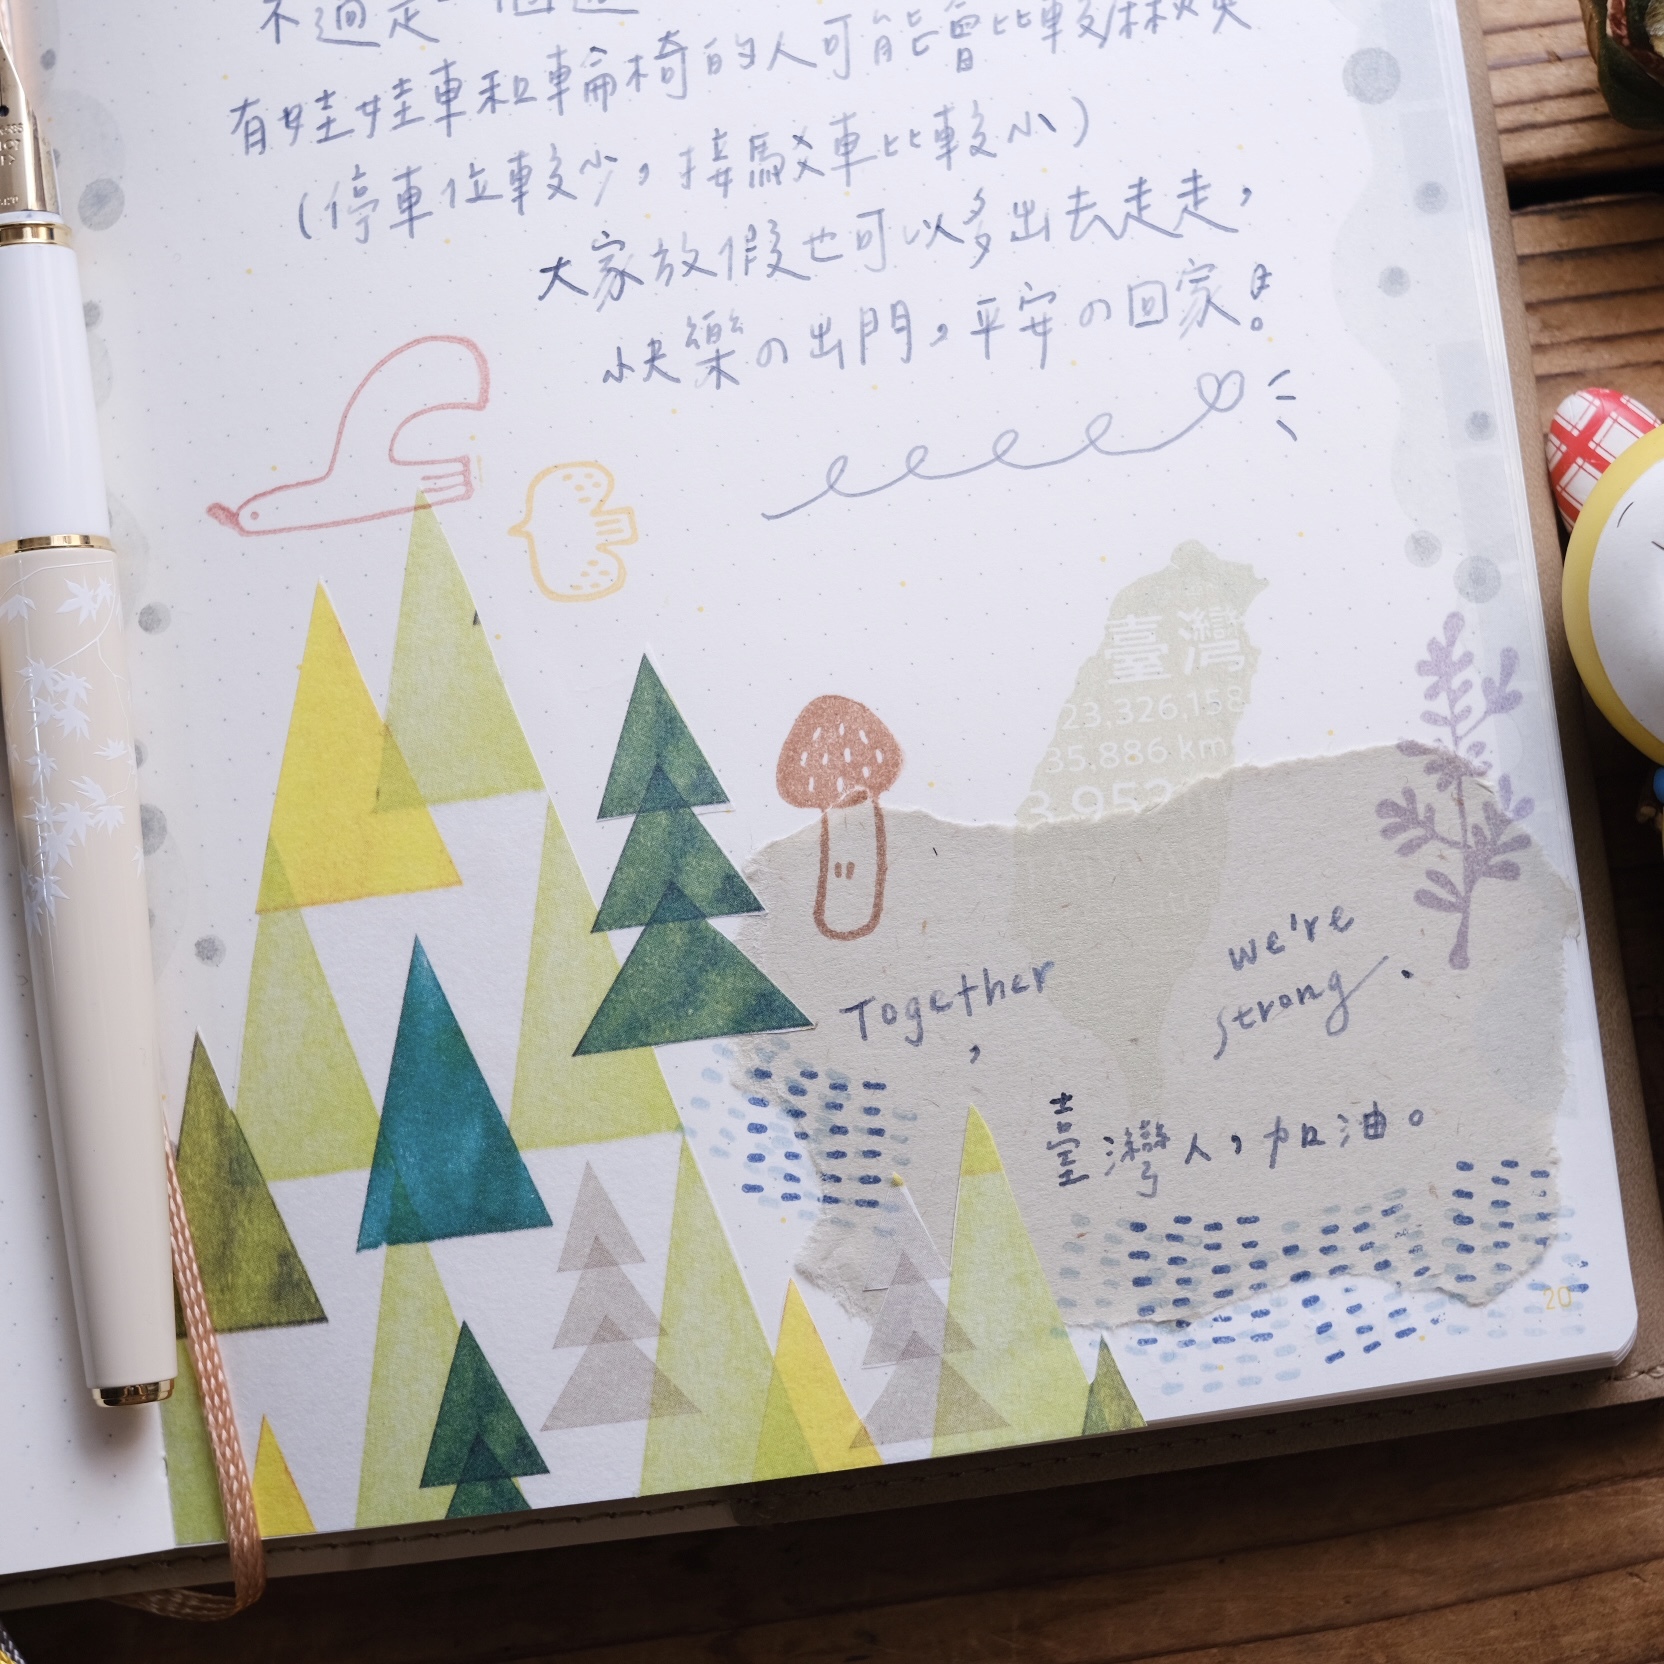 不過是一個
有娃娃車和輪椅的人可能會比較麻煩
(停車位較少,接駁車比較小)
大家放假也可以多出去走走,
快樂の出門,平安の回家!
臺灣
23,326,158
35,886 km
3,952
Together
,
we're
strong.
臺灣人,加油。
20